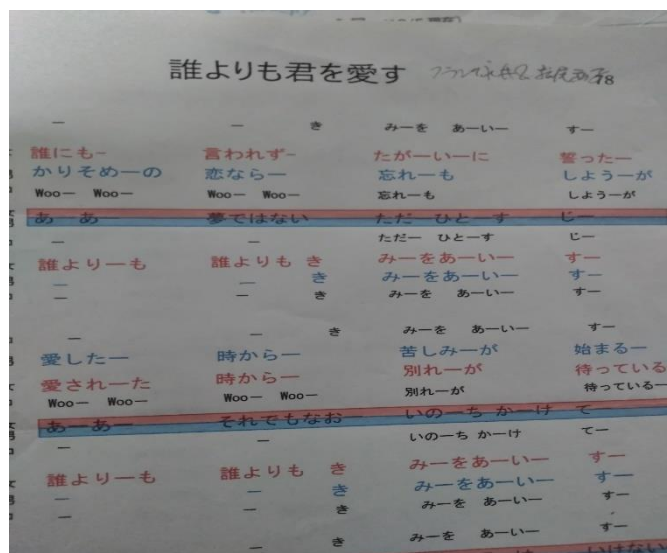 誰よりも君を愛す
ー ー き みーを あーいー すー
誰にも- 言われず- たがーいーに 誓ったー
かりそめーの 恋ならー 忘れーも しようーが
Wooー Wooー Wooー Wooー 忘れーも しようーが
あーあー 夢ではない ただーひとーす じー
ー ー ただー ひとーす じー
誰よりーも 誰よりも き みーをあーいー すー
ー ー き みーをあーいー すー
ー ー き みーを あーいー すー
ー き みーを あーいー すー
愛したー 時からー 苦しみーが 始まるー
愛されーた 時からー 別れーが 待っている
Wooー Wooー Wooー Wooー 別れーが 待っているー
あーあー それでもなお いのーち かーけ てー
ー ー いのーち かーけ てー
誰よりーも 誰よりも き みーをあーいー すー
ー ー き みーをあーいー すー
ー ー き みーを あーいー すー
ー き みーを あーいー すー